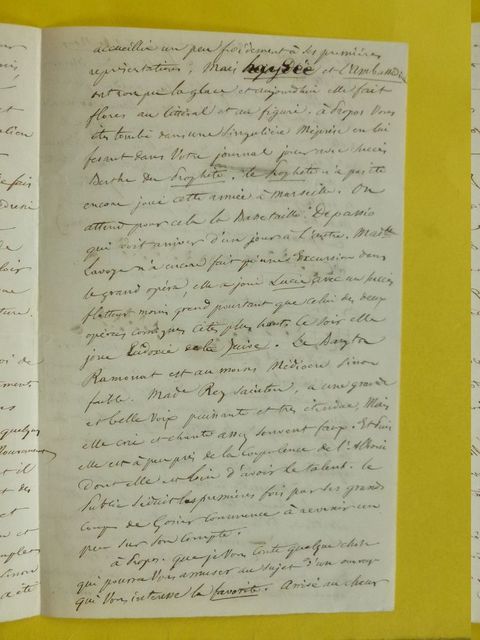 accueillie un peu froidement à ses premières
représentations, Mais haydée et l'Ambassadrice
ont rompu la glace et aujourdhui elle fait
flores au littéral et au figuré. à Propos Vous
êtes tombé dans une Singulière Méprise en lui
fesant dans Votre journal jouer avec succès
Berthe du Prophète. le Prophète n'a pas été
encore joué cette année à marseille. On
attend pour cela la Basse taille Depassio
qui doit arriver d'un jour à l'autre. Madlle
Lavoye n'a encore fait qu'une Excursion dans
le grand opéra, elle a joué Lucie avec un succès
flatteur moins grand pourtant que celui des deux
opéras comiques cités plus haut. Ce Soir elle
joue Eudoxie de la Juive. Le Baryton
est au moins Médiocre sinon
faible. Made Rey Sainton, a une grande
et belle Voix puissante et très étendue, Mais
elle crie et chante assez Souvent faux. Et puis
elle est à peu près de la corpulence de l'Alboni
Dont elle est loin d'avoir le talent. le
Public Séduit les premières fois par ses grands
coups de Gosier Commence à revenir un
peu sur Son Compte.
à Propos. que je Vous Conte quelque chose
qui pourra Vous amuser au Sujet d'un ouvrage
qui Vous intéresse la favorite. Arrivé au chœur